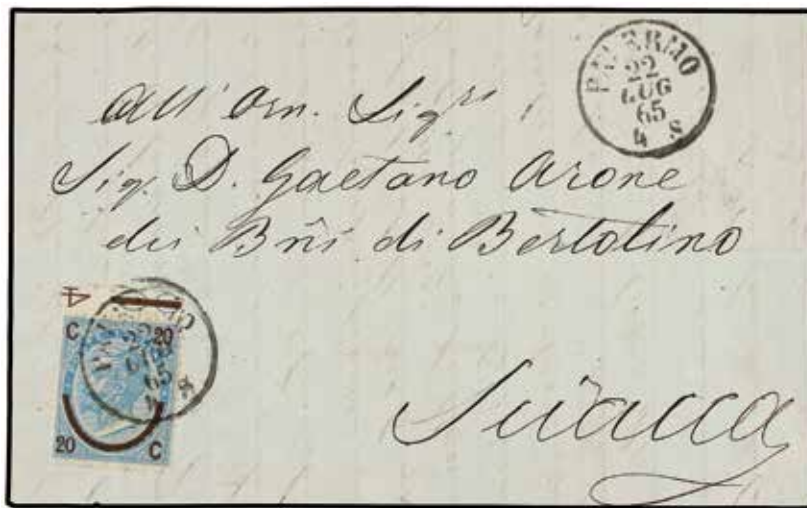 PALERMO
22
LUG
65
4 S
All' Orn. Sigre
Sig. D. Gaetano Arone
dei Bni di Bertolino
4
C 20
PALERMO
22
LUG
65
4 S
20 C
Sciacca